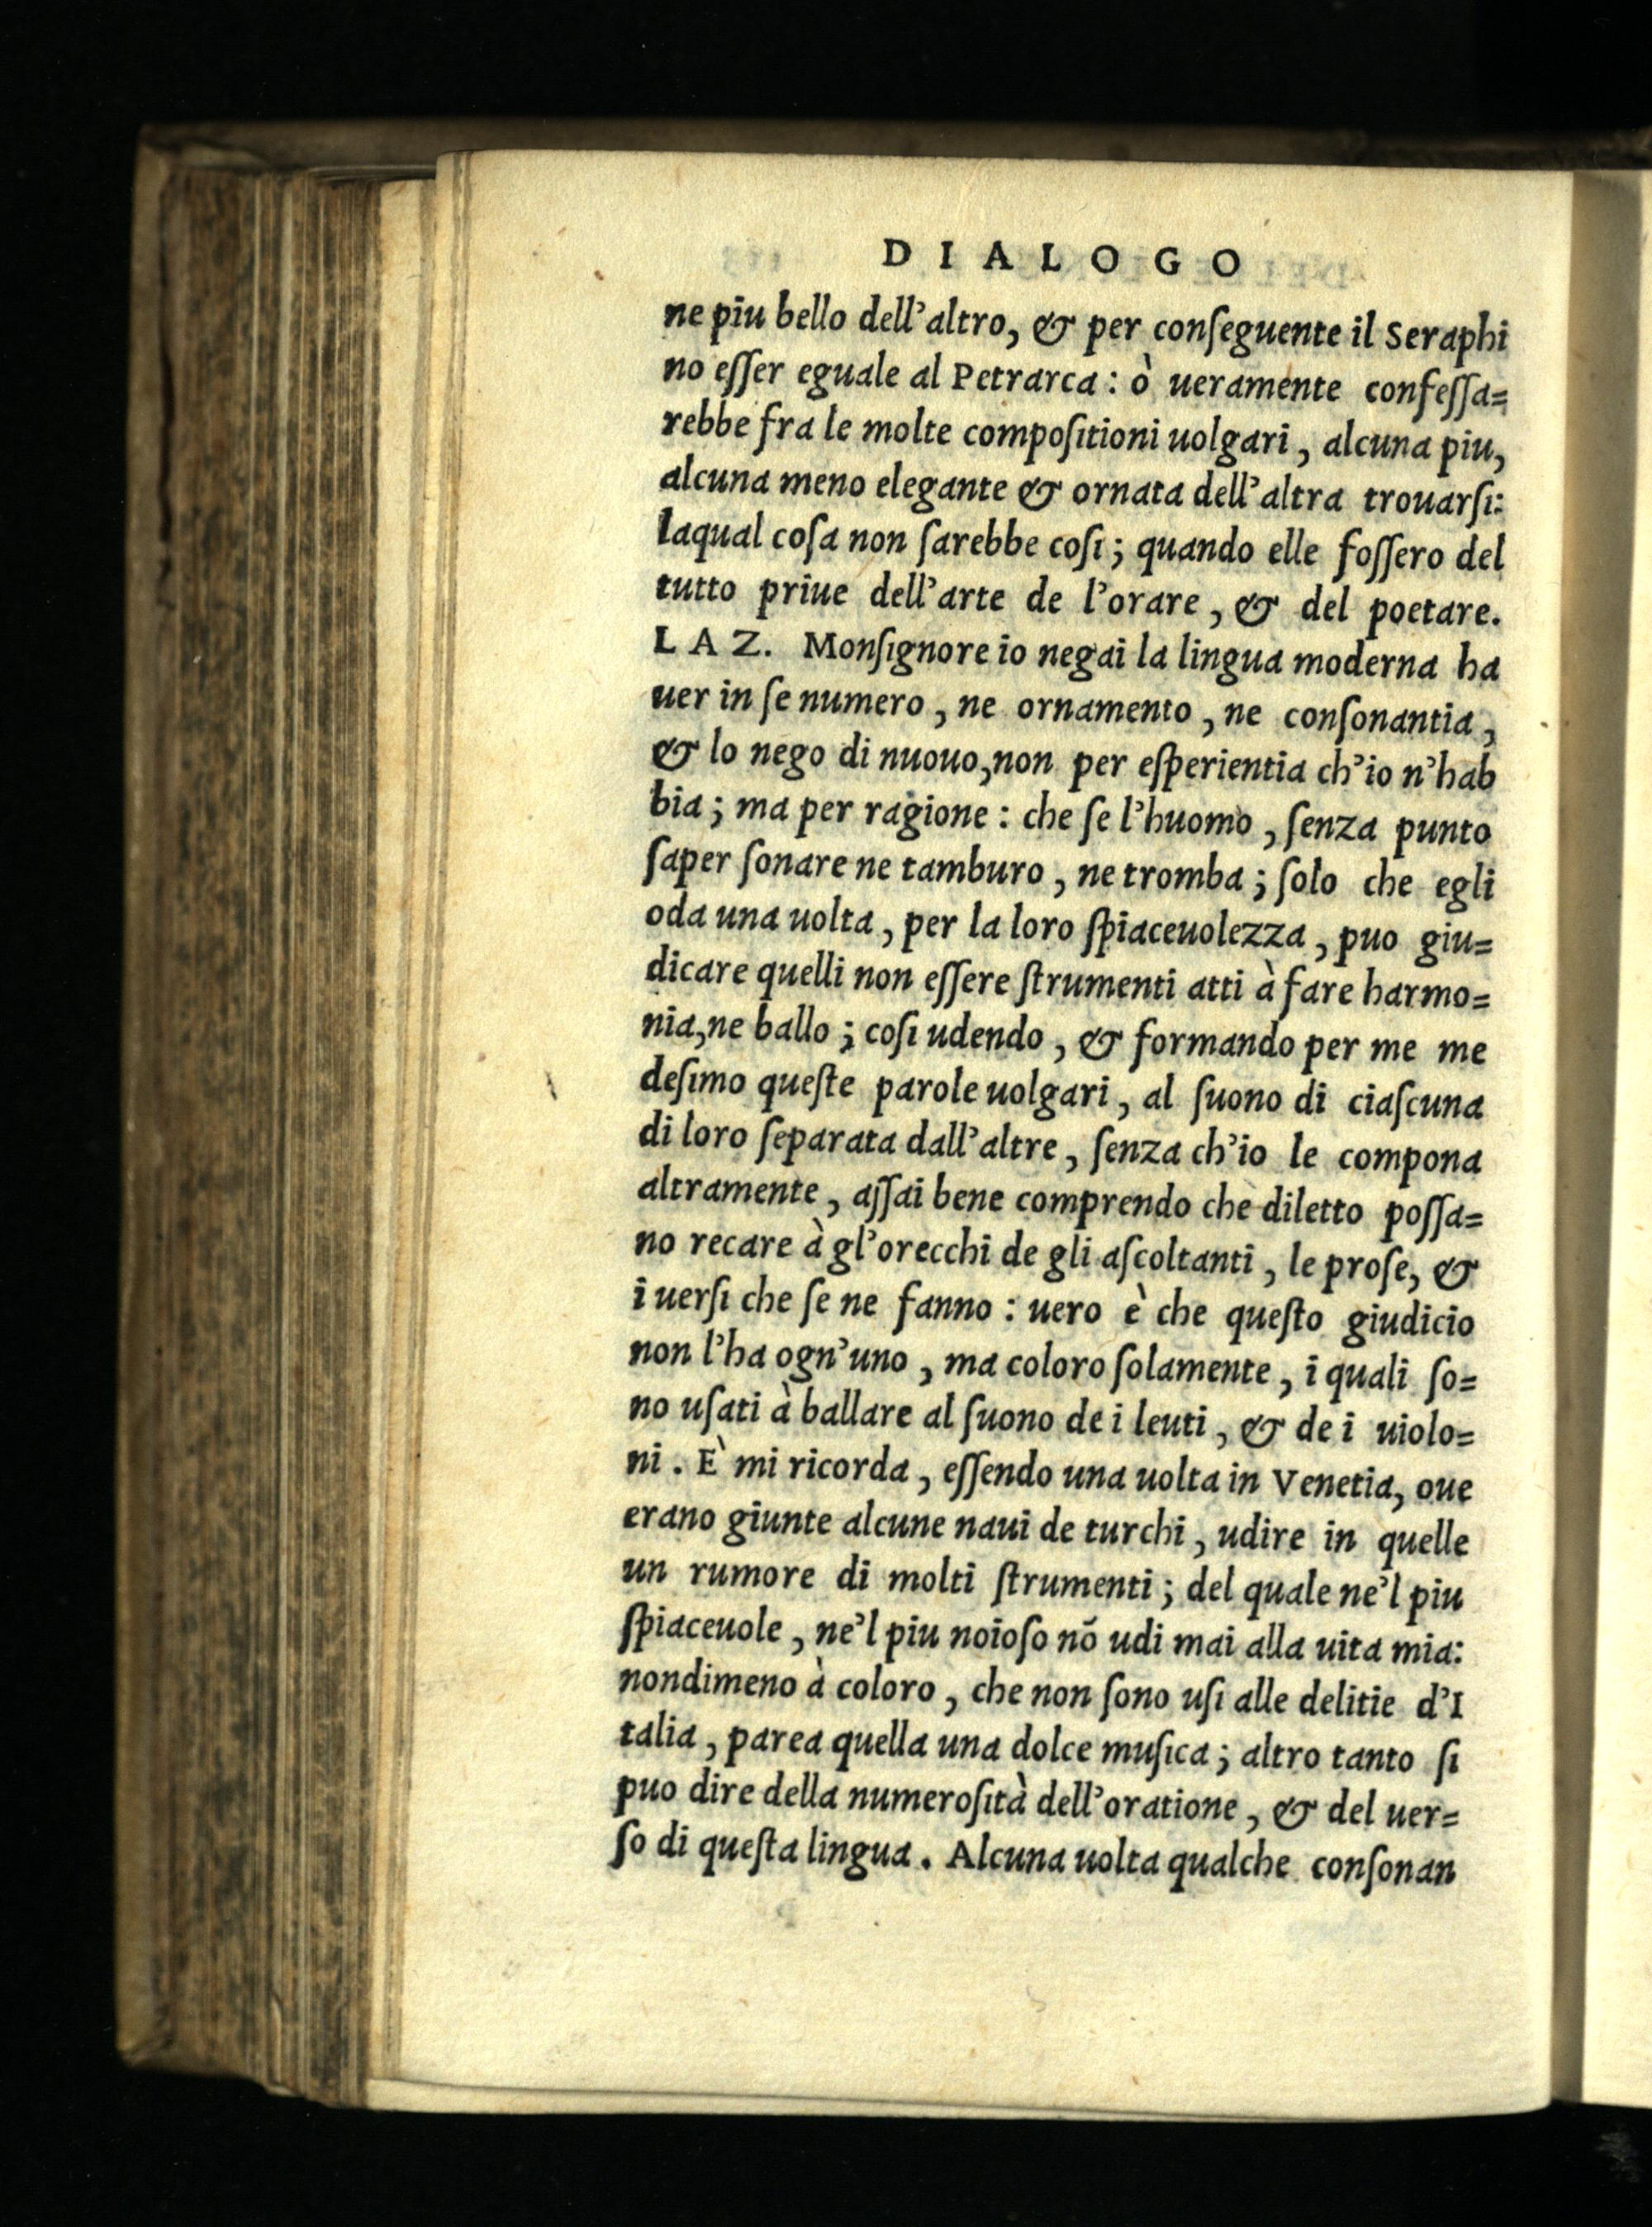 DIALOGO
ne piu bello dell'altro, & per conſeguente il Seraphi
no eſſer eguale al Petrarca: ò ueramente confeſſa=
rebbe fra le molte compoſitioni uolgari, alcuna piu,
alcuna meno elegante & ornata dell'altra trouarſi:
laqual coſa non ſarebbe coſi; quando elle foſſero del
tutto priue dell'arte de l'orare, & del poetare.
LAZ. Monſignore io negai la lingua moderna ha
uer in ſe numero, ne ornamento, ne conſonantia,
& lo nego di nuouo, non per eſperientia ch'io n'hab
bia; ma per ragione: che ſe l'huomo, ſenza punto
ſaper ſonare ne tamburo, ne tromba; ſolo che egli
oda una uolta, per la loro ſpiaceuolezza, puo giu=
dicare quelli non eſſere ſtrumenti atti à fare harmo=
nia, ne ballo; coſi udendo, & formando per me me
deſimo queſte parole uolgari, al ſuono di ciaſcuna
di loro ſeparata dall'altre, ſenza ch'io le compona
altramente, aſſai bene comprendo che diletto poſſa=
no recare à gl'orecchi de gli aſcoltanti, le proſe, &
i uerſi che ſe ne fanno: uero è che queſto giudicio
non l'ha ogn'uno, ma coloro ſolamente, i quali ſo=
no uſati à ballare al ſuono de i leuti, & de i uiolo=
ni. È mi ricorda, eſſendo una uolta in Venetia, oue
erano giunte alcune naui de turchi, udire in quelle
un rumore di molti ſtrumenti; del quale ne'l piu
ſpiaceuole, ne'l piu noioſo nõ udi mai alla uita mia:
nondimeno à coloro, che non ſono uſi alle delitie d'I
talia, parea quella una dolce muſica; altro tanto ſi
puo dire della numeroſità dell'oratione, & del uer=
ſo di queſta lingua. Alcuna uolta qualche conſonan